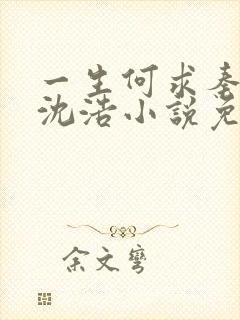 一生何求秦
沈浩小說免
余文彎